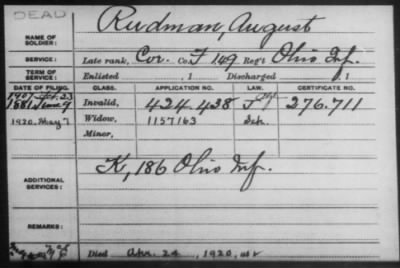 DEAD
Rudman, August
NAME OF SOLDIER:
SERVICE: Late rank, Cor. Co. F 149 Reg't Ohio Inf.
TERM OF SERVICE: Enlisted , 1 Discharged , 1
DATE OF FILING. CLASS. APPLICATION NO. LAW. CERTIFICATE NO.
1907 Feb. 23
1881 June 9 Invalid, 424.438 276.711
1920, May 7 Widow, 1157163
Minor,
ADDITIONAL SERVICES: K, 186 Ohio Inf.
REMARKS:
Died Apr. 24, 1920,